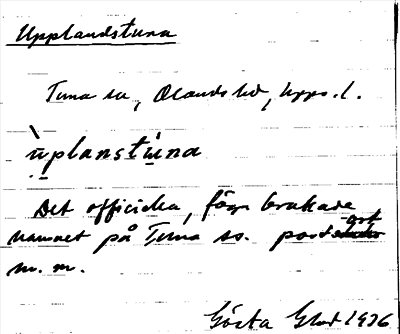 Upplandstuna
Tuna sn, Olands hd, Upps. l.
ùplanstùna
Det officiella, föga brukade
namnet på Tuna ss. postort
m.m.
Gösta 1936